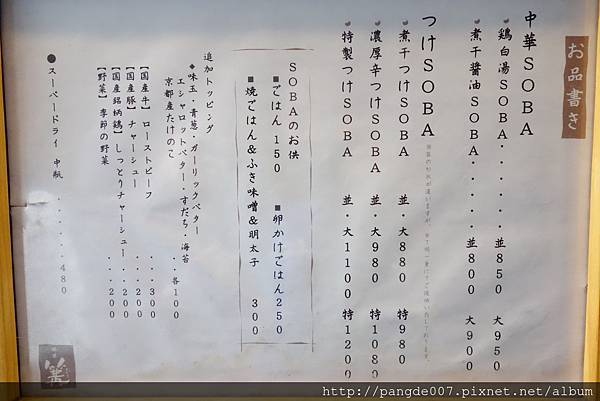 お品書き
中華SOBA
鶏白湯SOBA・・・・・並850 大950
煮干醤油SOBA・・・・・並800 大900
つけSOBA
煮干つけSOBA 並・大880 特980
濃厚辛つけSOBA 並・大980 特1080
特製つけSOBA 並・大1100 特1200
SOBAのお供
■ごはん 150 ■卵かけごはん250
■焼ごはん&ふき味噌&明太子 300
追加トッピング
◆味玉・青葱・ガーリックバター
エシャロットバター・すだち・海苔
京都産たけのこ ・・各100
【国産牛】ローストビーフ ・・・300
【国産豚】チャーシュー ・・・200
【国産銘柄鶏】しっとりチャーシュー・・200
【野菜】季節の野菜 ・・・200
●スーパードライ 中瓶 ・・・・・・480
笑
http://pangde007.pixnet.net/album